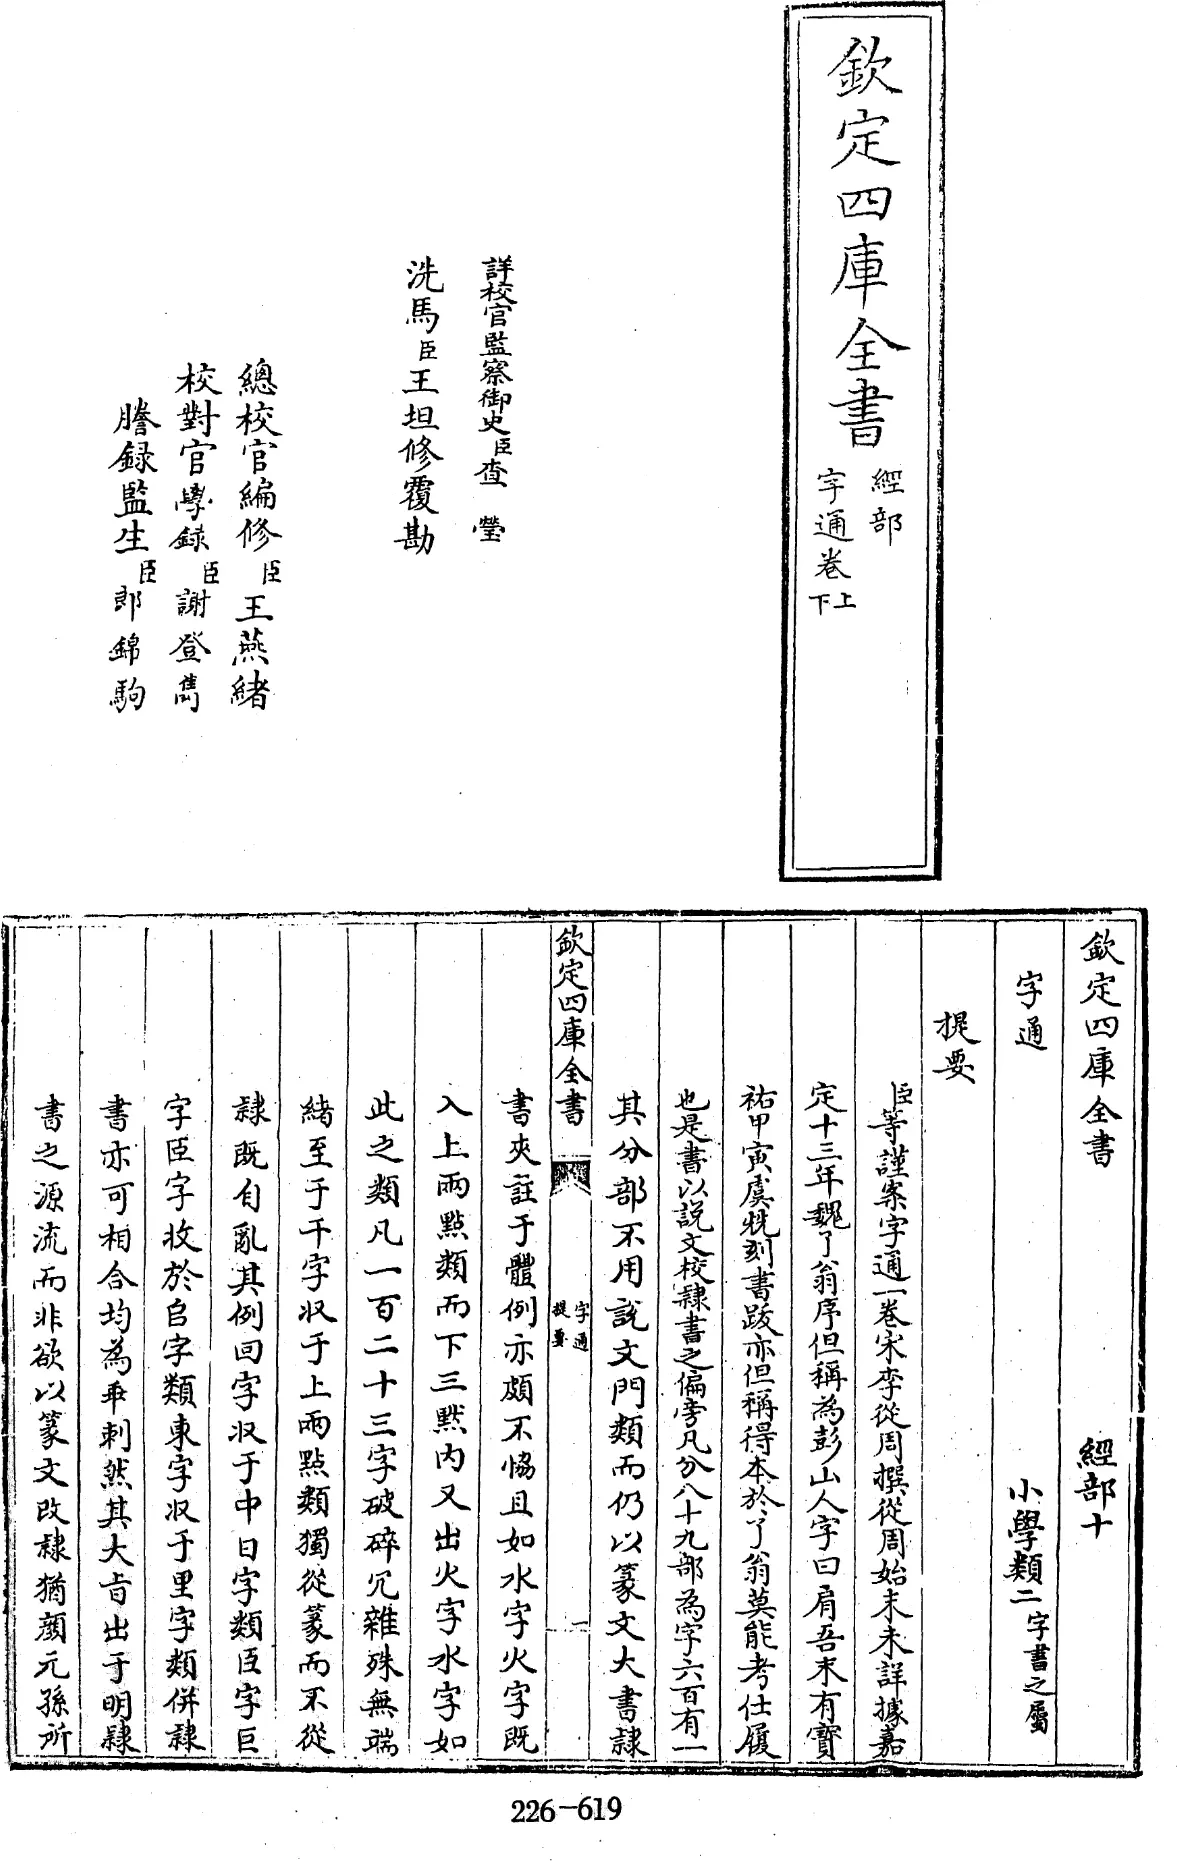 欽定四庫全書
經部
字通卷上
下
詳校官監察御史臣查瑩
洗馬臣王坦修覆勘
總校官編修臣王燕緒
校對官學録臣謝登雋
謄録監生臣郎錦駒
欽定四庫全書 經部十
字通 小學類二字書之屬
提要
臣等謹案字通一卷宋李從周撰從周始末未詳據嘉
定十三年魏了翁序但稱為彭山人字曰肩吾末有寳
祐甲寅虞兟刻書跋亦但稱得本於了翁莫能考仕履
也是書以說文校隸書之偏旁凡分八十九部為字六百有一
其分部不用說文門類而仍以篆文大書隸
欽定四庫全書
字通
提要
一
書夾註于體例亦頗不恊且如水字火字既
入上兩點類而下三點内又出火字水字如
此之類凡一百二十三字破碎冗雜殊無端
緒至于干字收于上兩點類獨從篆而不從
隸既自亂其例回字收于中日字類臣字巨
字𦣞字收於𦣞字類東字收于里字類併隸
書亦可相合均為乖刺然其大㫖出于明隸
書之源流而非欲以篆文改隸猶顔元孫所
226-619